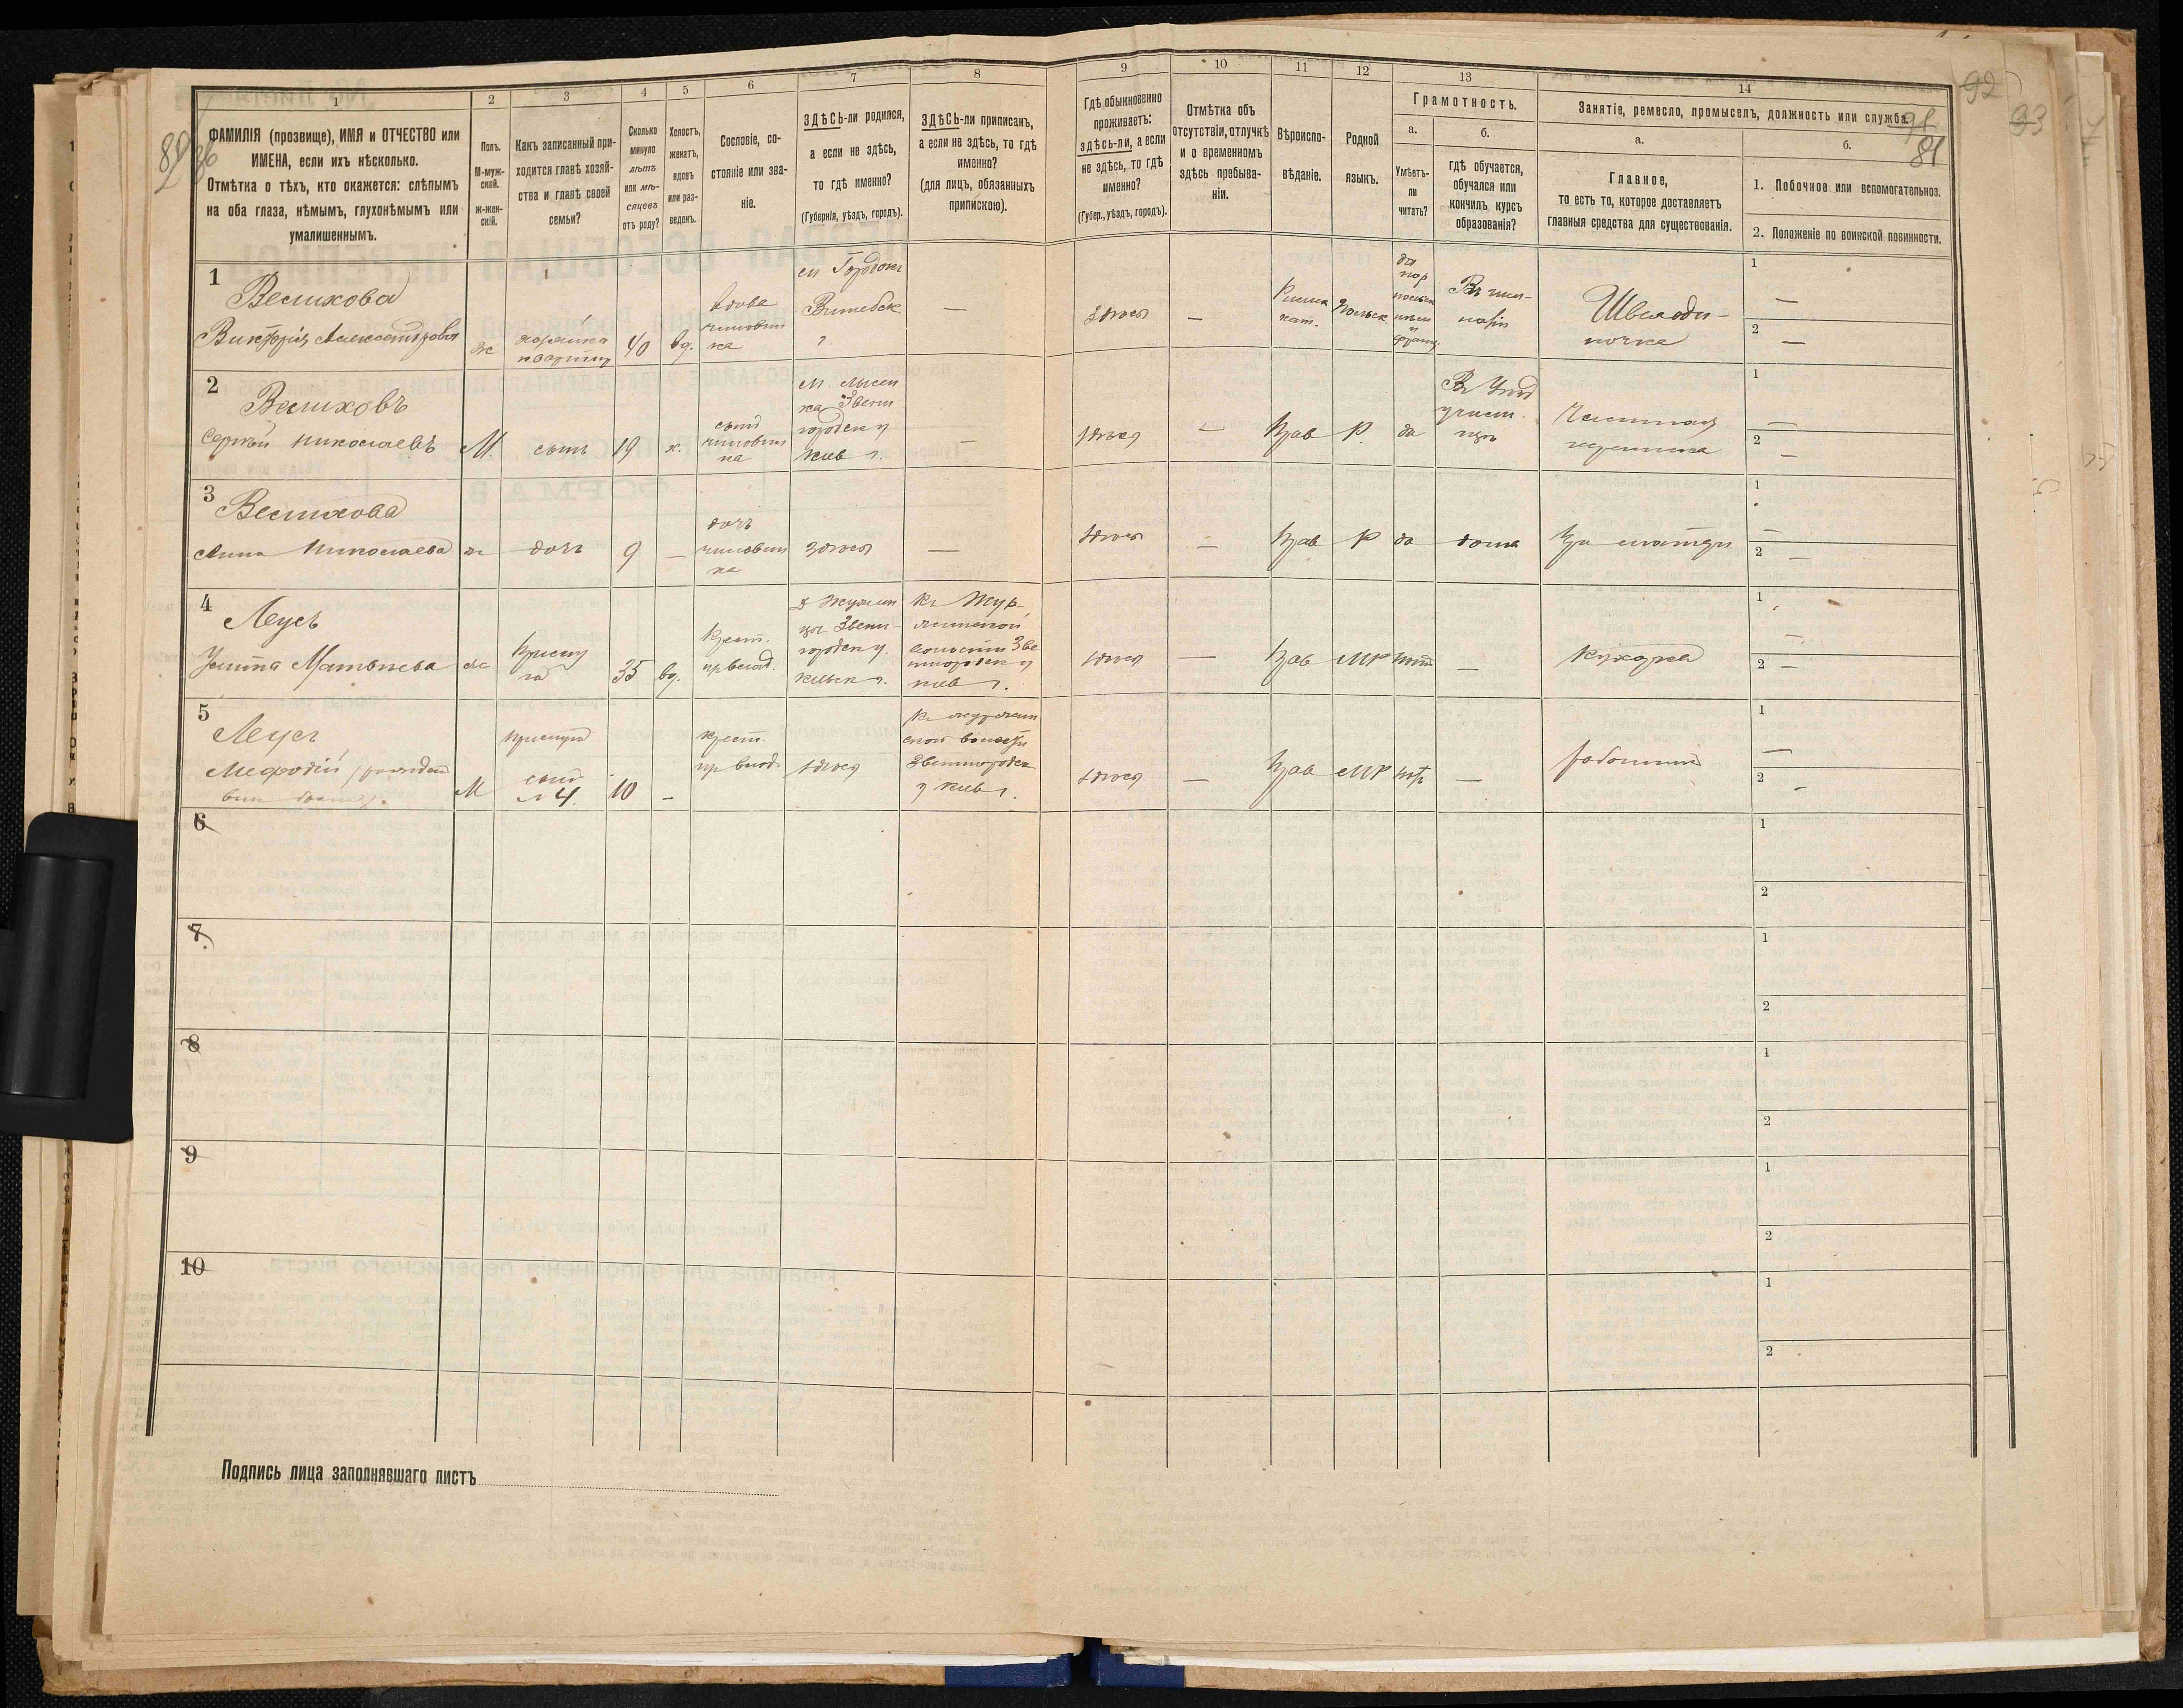 92
93
91
81
89
1
2
3
4
5
6
7
8
9
10
11
12
13
14
ФАМИЛІЯ (прозвище), ИМЯ и ОТЧЕСТВО или
ИМЕНА, если ихъ нѣсколько.
Отмѣтка о тѣхъ, кто окажется: слѣпымъ
на оба глаза, нѣмымъ, глухонѣмымъ или
умалишеннымъ.
Полъ.
М-муж-
ской.
ж-жен-
скій.
Какъ записанный при-
ходится главѣ хозяй-
ства и главѣ своей
семьи?
Сколько
минуло
лѣтъ
или мѣ-
сяцевъ
отъ роду?
Холостъ,
женатъ,
вдовъ
или раз-
веденъ.
Сословіе, со-
стояніе или зва-
ніе.
ЗДѢСЬ-ли родился,
а если не здѣсь,
то гдѣ именно?
(Губернія, уѣздъ, городъ).
ЗДѢСЬ-ли приписанъ,
а если не здѣсь, то гдѣ
именно?
(для лицъ, обязанныхъ
припискою).
Гдѣ обыкновенно
проживаетъ:
здѣсь-ли, а если
не здѣсь, то гдѣ
именно?
(Губер., уѣздъ, городъ).
Отмѣтка объ
отсутствіи, отлучкѣ
и о временномъ
здѣсь пребыва-
ніи.
Вѣроиспо-
вѣданіе.
Родной
языкъ.
Грамотность.
а.
Умѣетъ-
ли
читать?
б.
гдѣ обучается,
обучался или
кончилъ курсъ
образованія?
Занятіе, ремесло, промыселъ, должность или служба.
а.
Главное,
то есть то, которое доставляетъ
главныя средства для существованія.
б.
1. Побочное или вспомогательное.
2. Положеніе по воинской повинности.
1
Велихова
Викторія Александровна
ж
хозяйка
квартир
40
вд.
вдова
чиновни
ка
Городокъ
Витебск
г.
—
здѣсь
—
Римск
кат.
Польск
да
Въ пан-
1
—
2
—
2
Велиховъ
Сергѣй Николаевъ
М.
сынъ
19
х.
сынъ
чиновни
ка
м. Лысян
ка Звени
городск у
Кіев г.
—
здѣсь
—
Прав
Р.
да
Въ
учили
щѣ
Частная
1
—
2
—
3
Велихова
Анна Николаева
ж
дочь
9
—
дочь
чиновни
ка
здѣсь
—
здѣсь
—
Прав
Р
да
дома
При матери
1
—
2
—
4
Леусъ
Улита Матвѣева
ж
Прислу
га
35
вд.
Крест.
Звени-
городск у
Кіевск г.
волости Зве
нигородск у
кіев г.
здѣсь
—
Прав
МР
нѣтъ
—
Кухарка
1
—
2
—
5
Леусъ
Мефодій
М
прислуга
сынъ
№ 4
10
—
крест.
здѣсь
волости
Звенигородск
у Кіев г.
здѣсь
—
Прав
МР
нѣтъ
—
1
—
2
—
6
1
2
7
1
2
8
1
2
9
1
2
10
1
2
Подпись лица заполнявшаго листъ